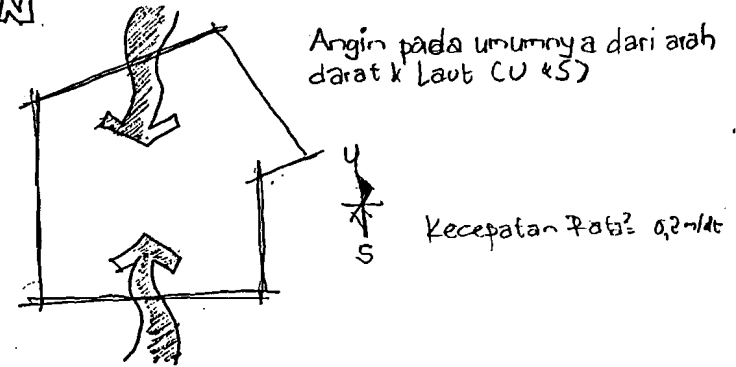 N
Angin pada umumnya dari arah
darat & Laut (U & S)
U
S
Kecepatan Rata²: 0,2 m/dt